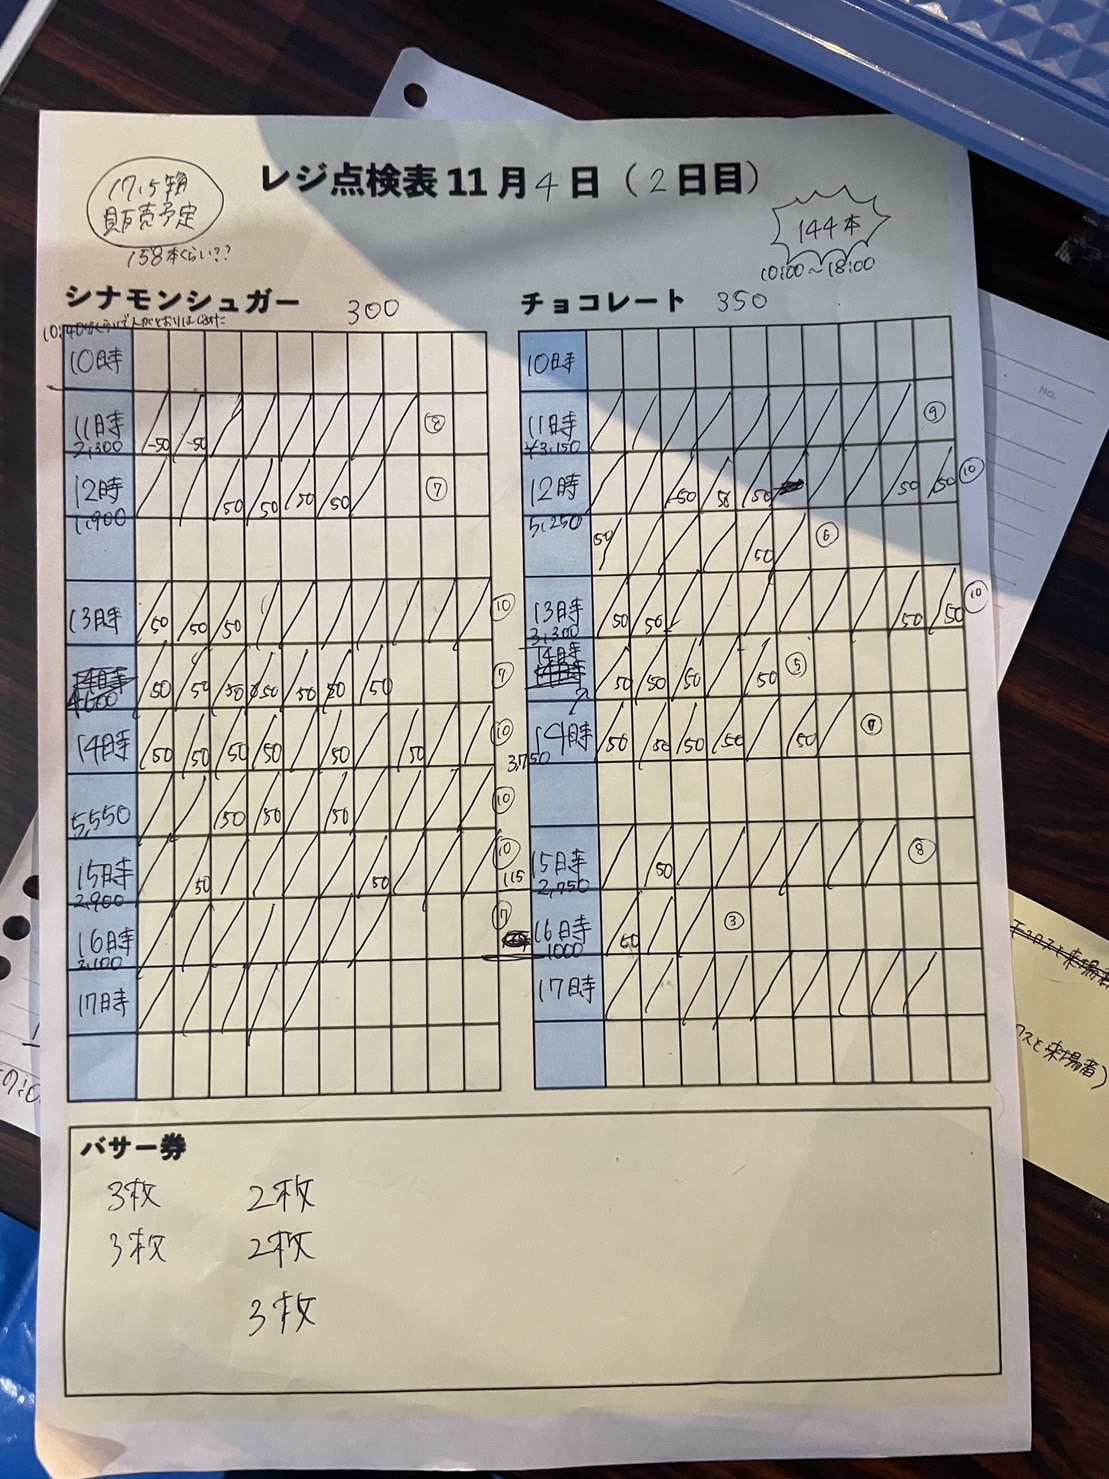 レジ点検表11月4日（2日目）
17.5箱
販売予定
158本くらい??
144本
10:00～18:00
シナモンシュガー 300
10:40
10時
11時 -50 -50 ⑧
2,300
12時 50 50 50 50 ⑦
1,900
13時 50 50 50 ⑩
50 50 50 50 50 50 50 ⑦
4,600
14時 50 50 50 50 50 50 ⑩
5,550 50 50 50 ⑩
15時 50 50 ⑩
2,900
16時 ⑦
2,100
17時
チョコレート 350
10時
11時 ⑨
¥3,150
12時 50 50 50 50 50 ⑩
5,250 50 50 ⑥
13時 50 50 50 50 ⑩
3,300
14時 50 50 50 50 ⑤
14時 50 50 50 50 50 ⑦
3,750
115
15時 50 ⑧
2,750
16時 50 ③
1000
17時
バサー券
3枚 2枚
3枚 2枚
3枚
NO.
クスと来場者)